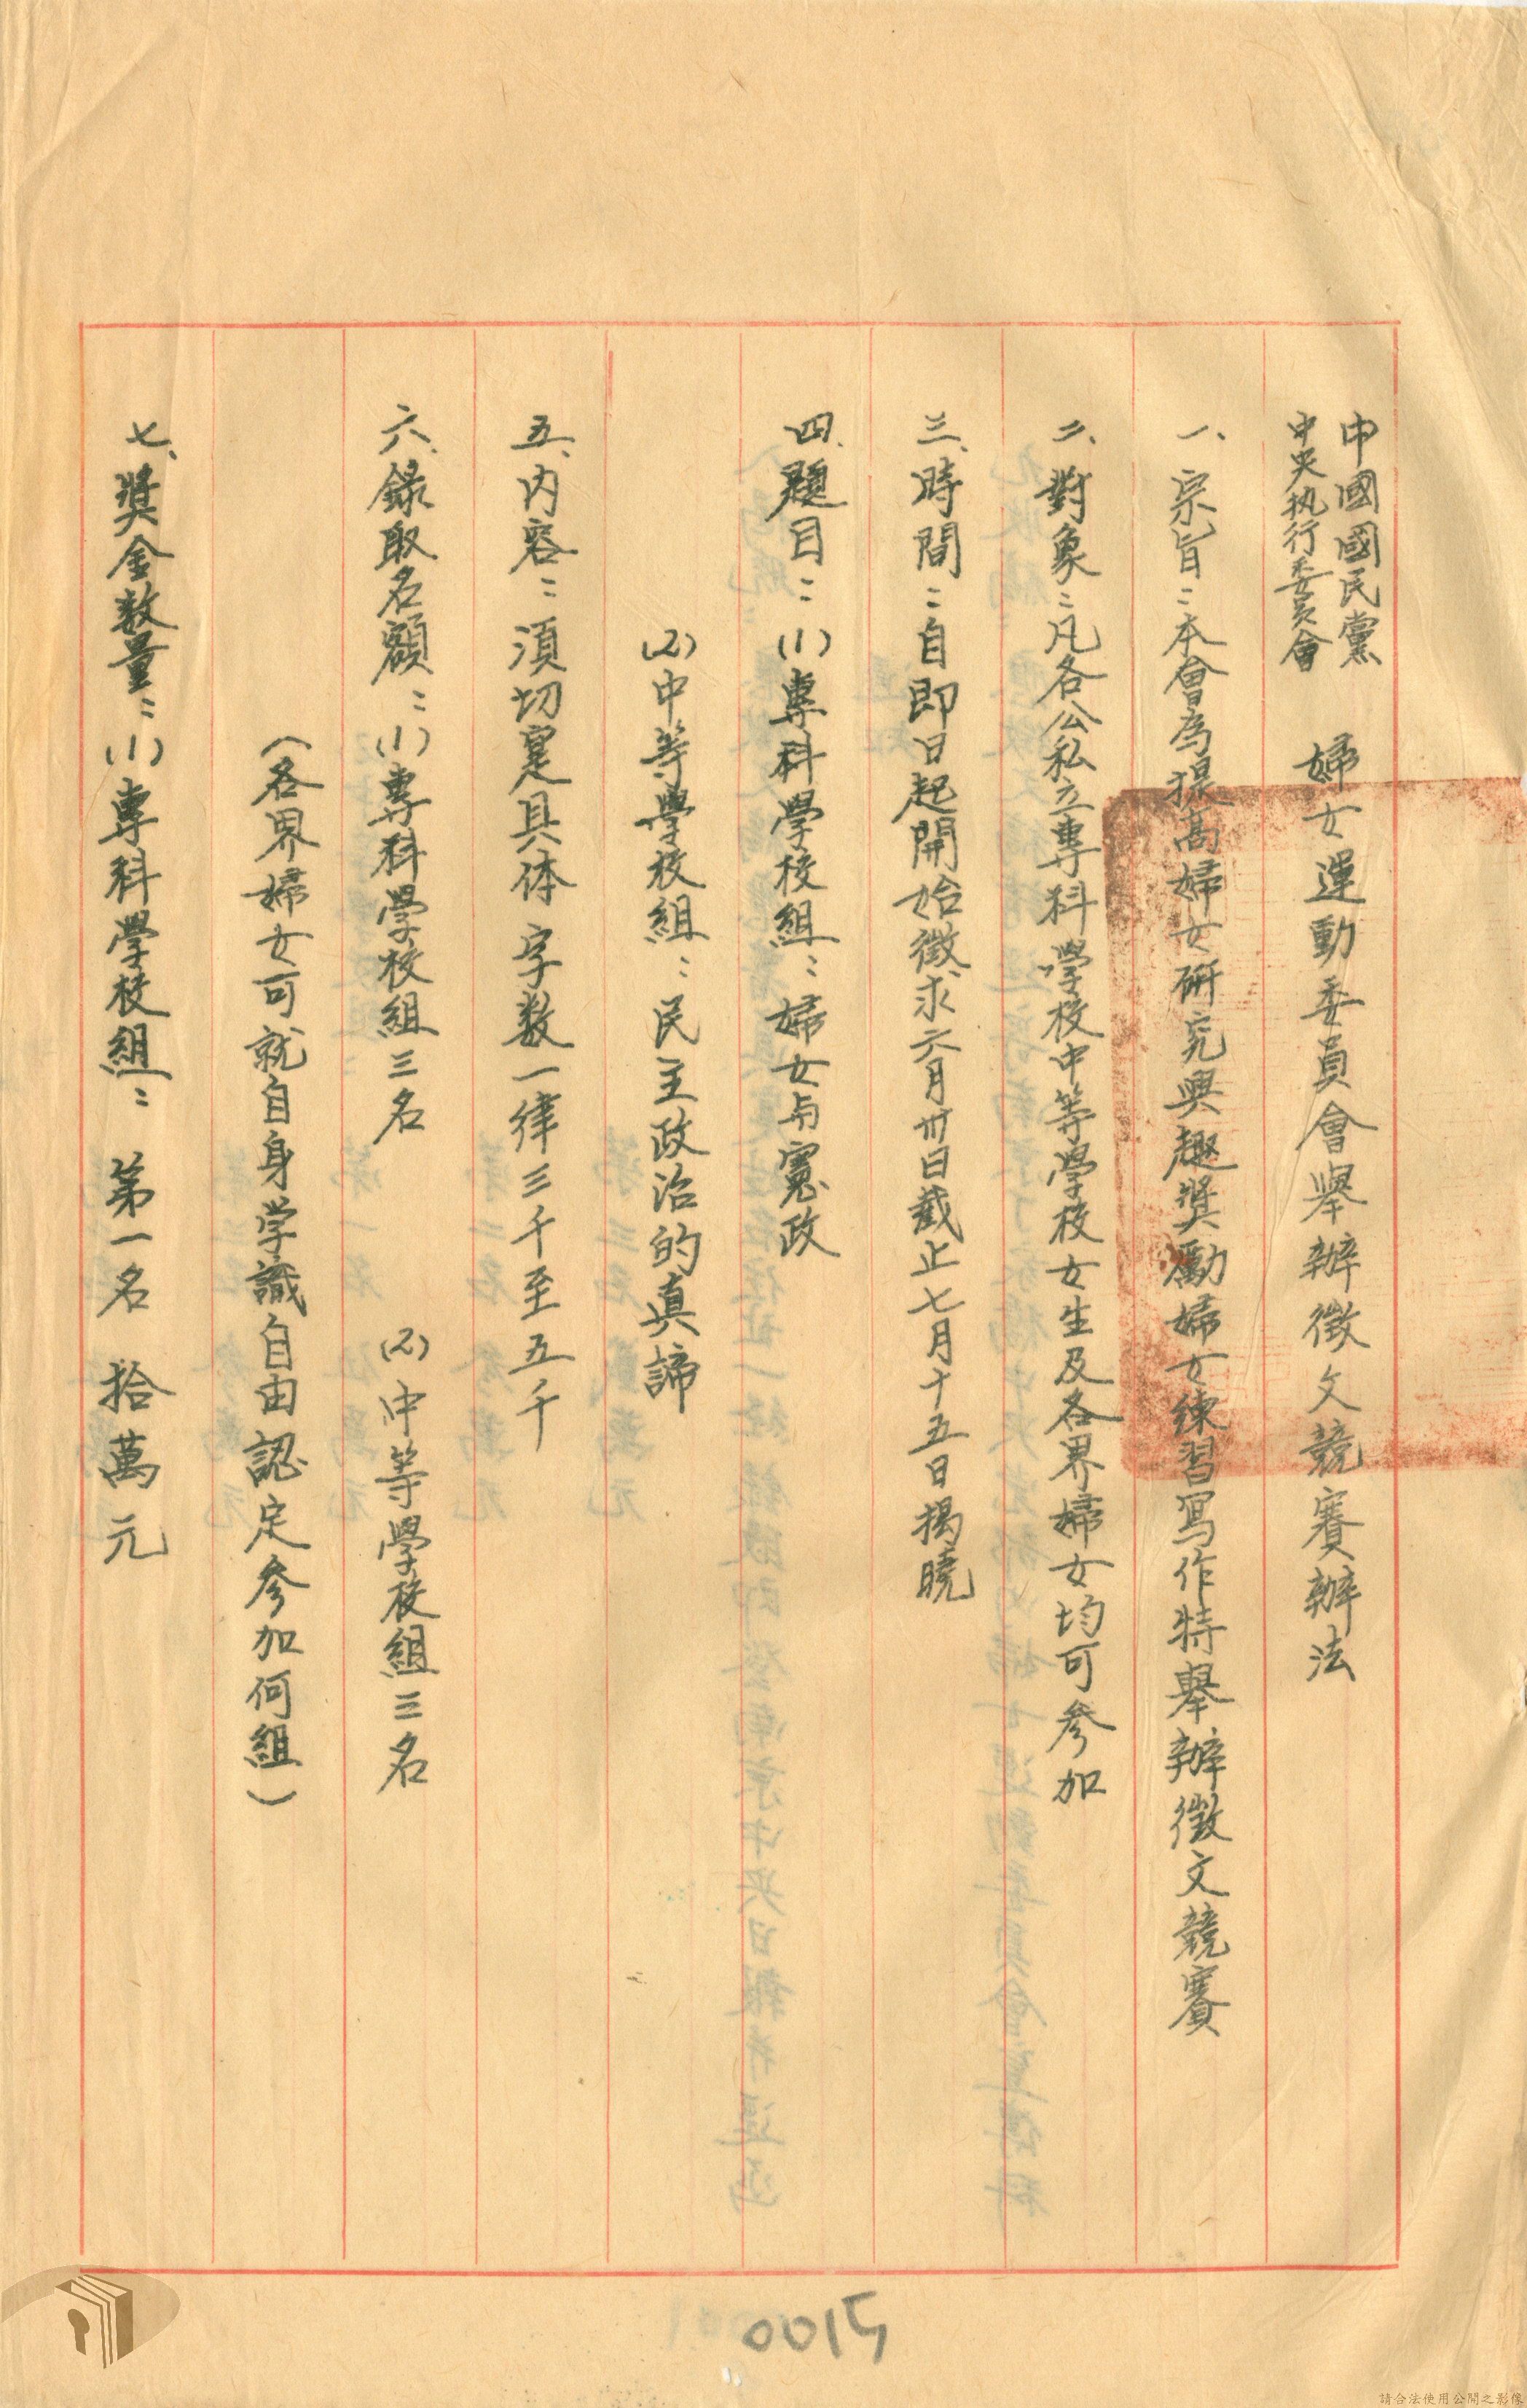 中國國民黨
中央执行委員會
婦女運動委員會舉辦徵文競賽辦法
一、宗旨：本會為提高婦女研究興趣獎勵婦女練習寫作特舉辦徵文競賽
二、對象：凡各公私立專科學校中等學校女生及各界婦女均可參加
三、時間：自即日起開始徵求六月卅日截止七月十五日揭曉
四、題目：(1)專科學校組：婦女与憲政
(2)中等學校組：民主政治的真諦
五、內容：須切寔具体字数一律三千至五千
六、錄取名額：(1)專科學校組三名 (2)中等學校組三名
（各界婦女可就自身学識自由認定參加何組）
七、獎金数量：(1)專科學校組：第一名 拾萬元
0015
請合法使用公開之影像